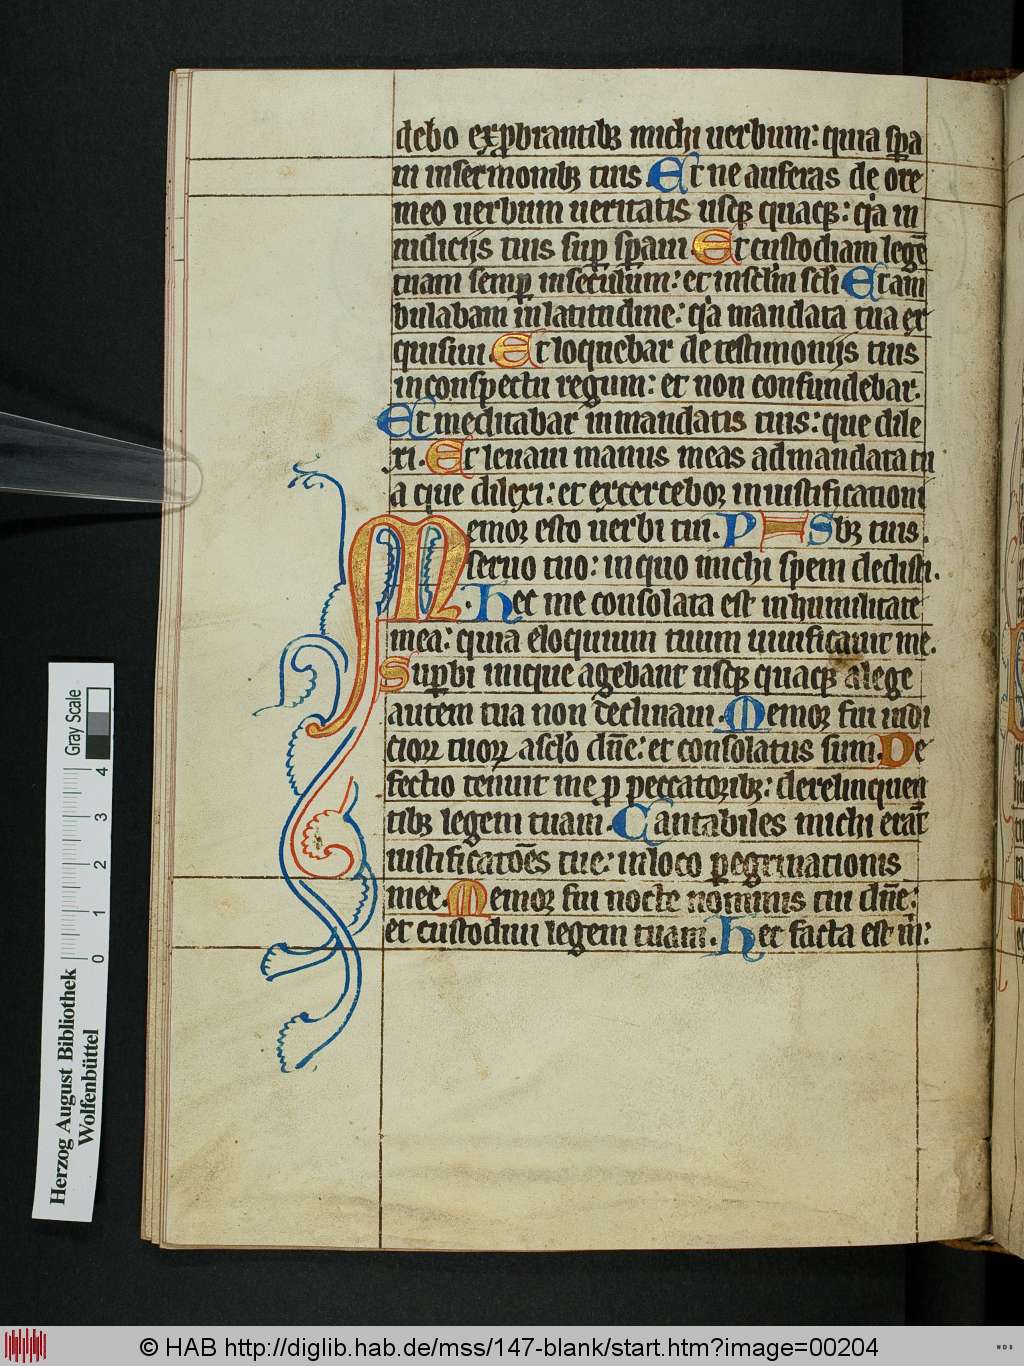 debo exprobrantibꝫ michi uerbum: quia spa
ui in sermonibꝫ tuis. Et ne auferas de ore
meo uerbum ueritatis usqꝫ quacqꝫ: qꝛa in
iudicijs tuis sup̱ sp̱aui. Et custodiam legē
tuam semp̱ in seculum: et in sclm̄ scl̄i. Et am
bulabam in latitudine: qꝛa mandata tua ex
quisiui. Et loquebar de testimonijs tuis
in conspectu regum: et non confundebar.
Et meditabar in mandatis tuis: que dile
xi. Et leuaui manus meas ad mandata tu
a que dilexi: et excercebor in iustificationi
Memor esto uerbi tui. PS bꝫ tuis.
seruo tuo: in quo michi spem dedisti.
Hec me consolata est in humilitate
mea: quia eloquium tuum uiuificauit me.
Sup̱bi inique agebant usqꝫ quacqꝫ a lege
autem tua non declinaui. Memor fui iudi
ciorꝝ tuorꝝ a sclo dn̄e: et consolatus sum. De
fectio tenuit me p̱ peccatoribꝫ: derelinquen
tibꝫ legem tuam. Cantabiles michi erāt
iustificatōēs tue: in loco p̱egrinationis
mee. Memor fui nocte nominis tui dn̄e:
et custodiui legem tuam. Hec facta est m̄:
Gray Scale
4 3 2 1 0
Herzog August Bibliothek
Wolfenbüttel
© HAB http://diglib.hab.de/mss/147-blank/start.htm?image=00204